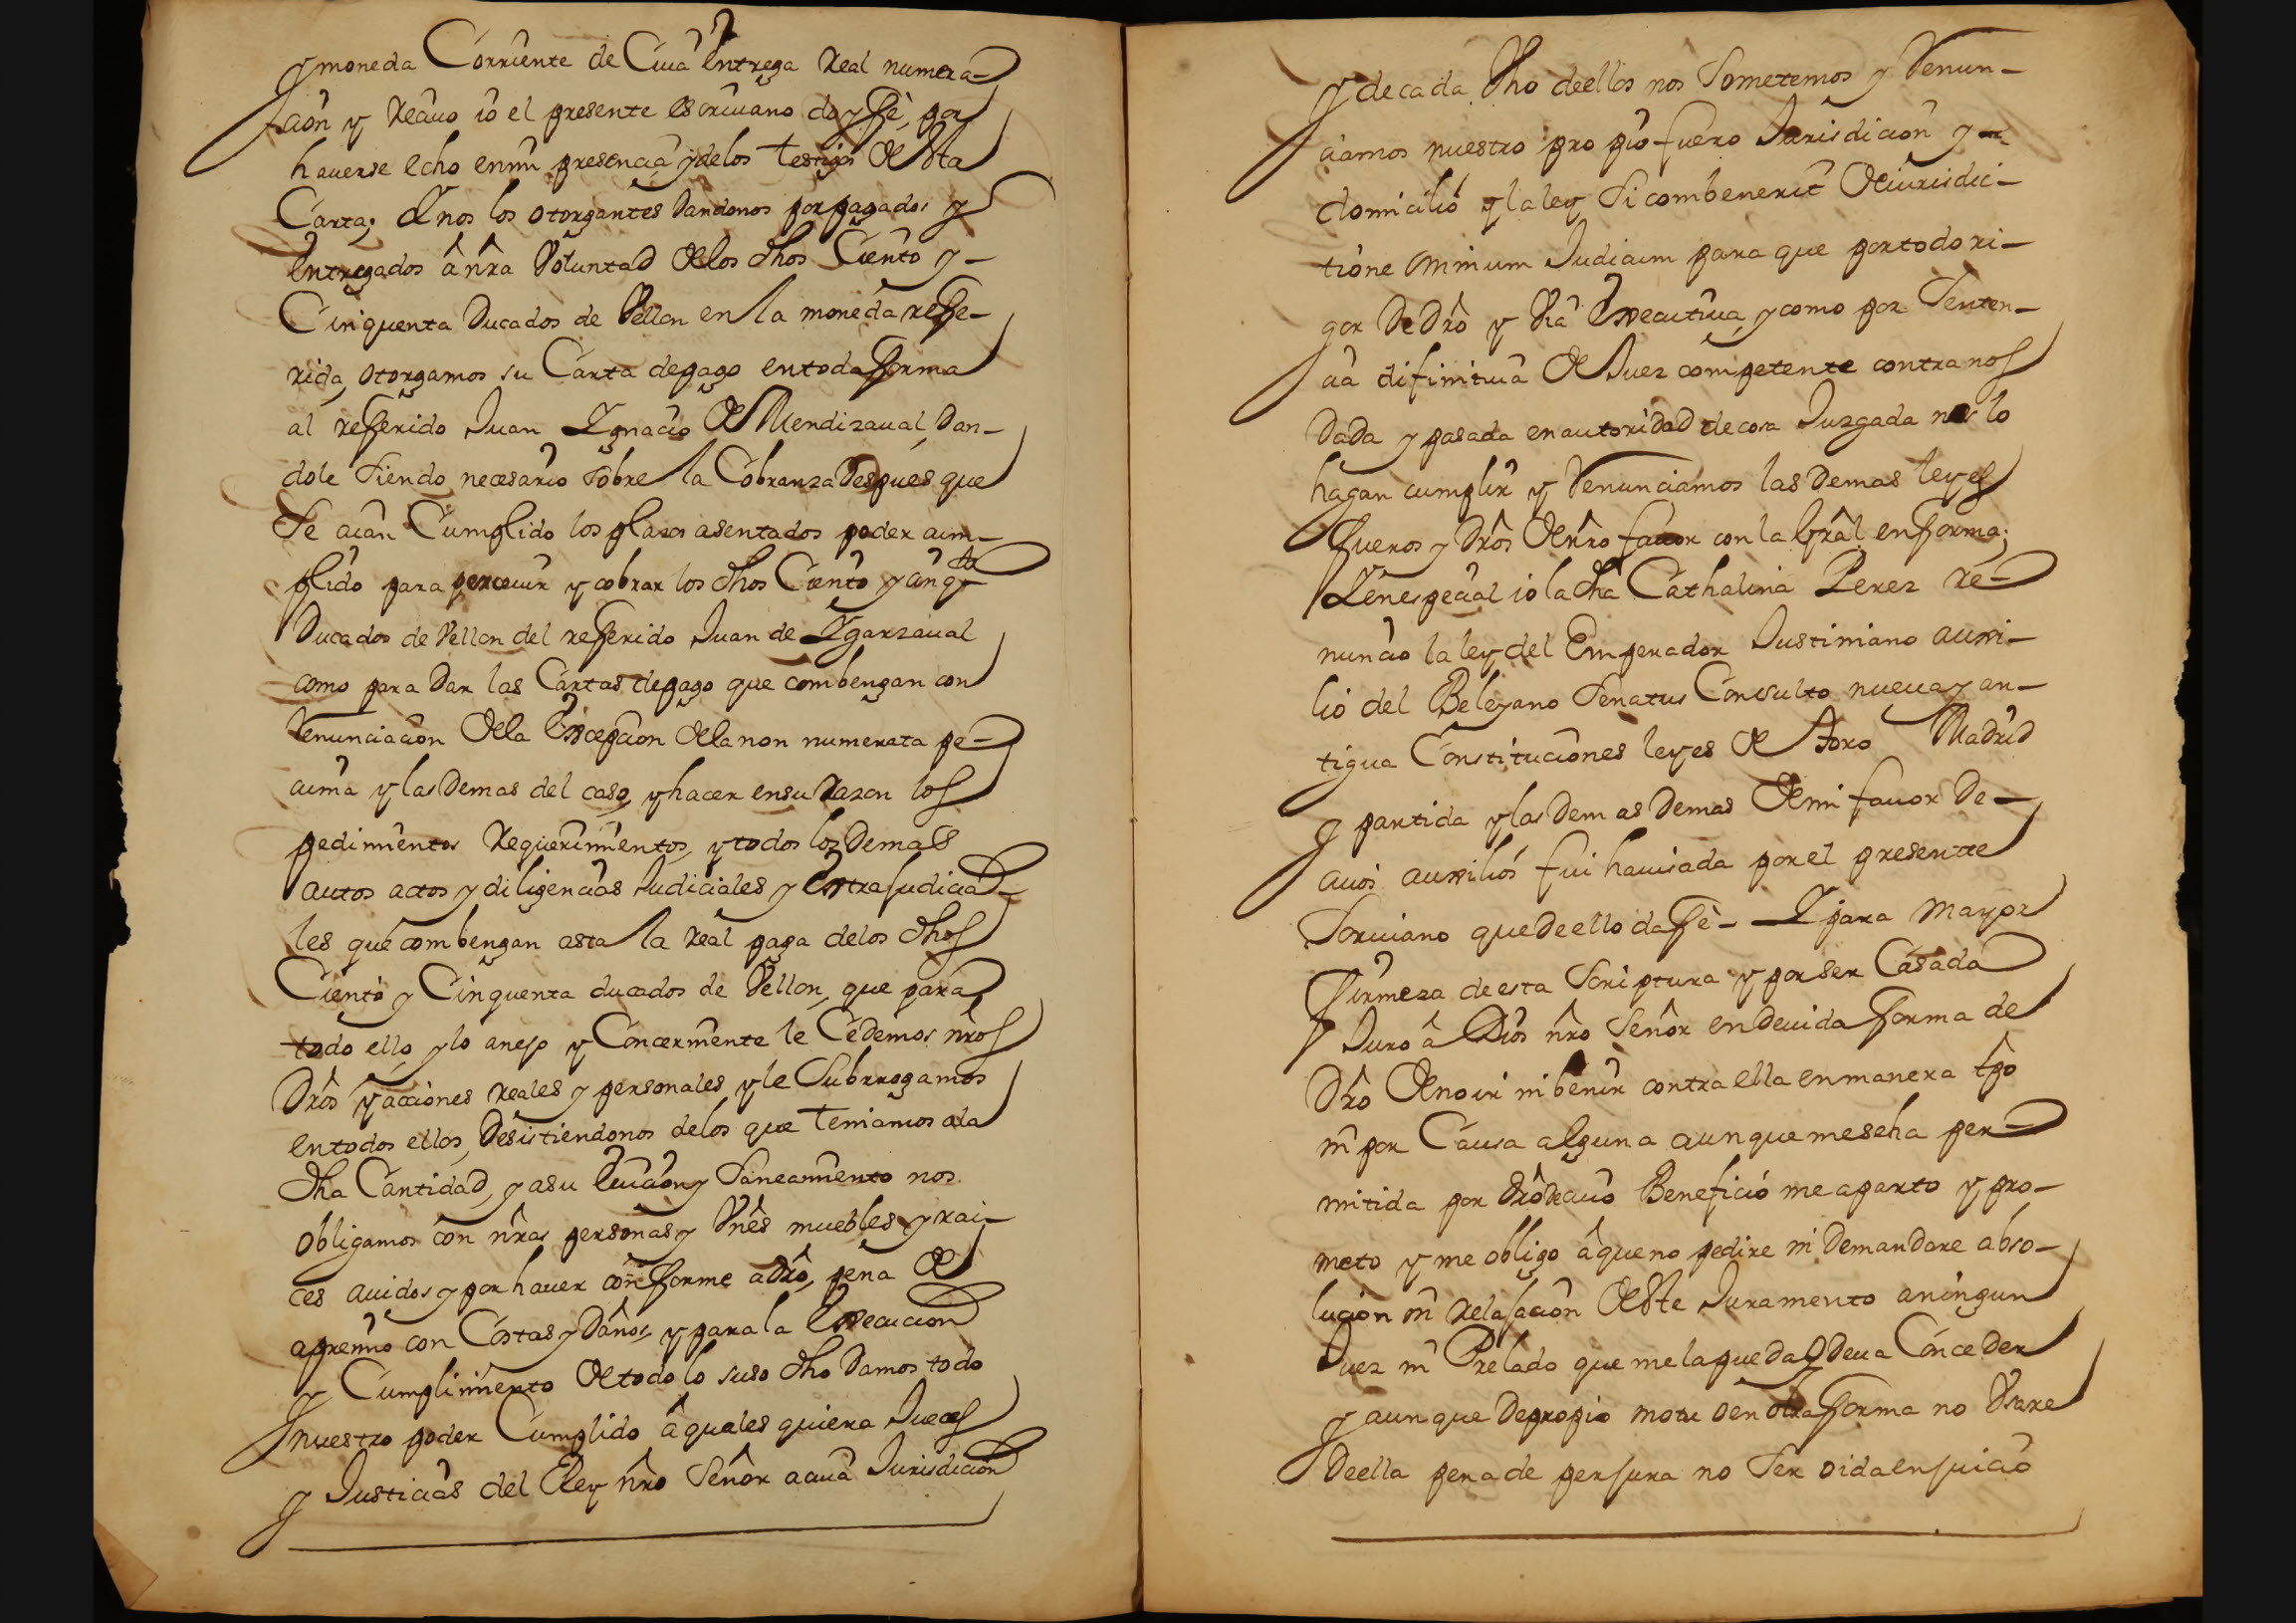 y moneda Corriente de Cuia Entrega Real numera-
cion y Reciuo io el presente escriuano doy fè, por
hauerse echo enmi presencia y delos testigos de esta
Carta; Y nos los otorgantes Dandonos por pagados y
Entregados â nrâ Voluntad de los dhos Ciento y-
Cinquenta Ducados de Vellon en la moneda refe-
rida, otorgamos su Carta de pago entoda forma
al referido Juan Ygnacio de Mendizaual, Dan-
dole Siendo necesario sobre la Cobranza Despues que
Se aian Cumplido los plazos asentados poder cum-
plido para perceuir y cobrar los dhos Ciento y cinqta
Ducados de Vellon del referido Juan de Ygarzaual
como para Dar las Cartas de pago que combengan con
Renunciacion de la Excepcion de la non numerata pe-
cunia y las Demas del caso, y hacer ensu Razon los
pedimientos Requerimientos, y todos los Demas
autos actos y diligencias Judiciales y Extrajudicia-
les que combengan asta la real paga delos dhos
Ciento y Cinquenta ducados de Vellon, que para
todo ello, y lo anejo y Concerniente le Cedemos nrôs
Drôs y acciones reales y personales, y le Subrrogamos
entodos ellos, Desistiendonos delos que teniamos ala
dha Cantidad, y asu Euiccion y Saneamiento nos
obligamos con nrâs personas y Vnês muebles y rai-
ces auidos y por hauer conforme a drô, pena de
apremio con Costas y Daños, y para la Execucion
y Cumplimiento de todo lo suso dho Damos todo
nuestro poder Cumplido â quales quiera Jueces
y Justicias del Rey nrô Señor acuia Jurisdicion
y de cada Vno deellos nos Sometemos y Renun-
ciamos nuestro propio fuero Jurisdicion y
domicilio y la ley Si combenerit de iurisdic-
tione omnium Judicum para que por todo ri-
gor De Drô y Via Executiua, y como por Senten-
cia difinitiua de Juez competente contra nos
Dada y pasada en autoridad de cosa Juzgada nos lo
hagan cumplir y Renunciamos las Demas leyes
fueros y Drôs de nrô fauor con la Grâl en forma;
Y en especial io la dha Cathalina Perez Re-
nuncio la ley del Emperador Justiniano auxi-
lio del Beleyano Senatus Consulto nueua y an-
tigua Constituciones leyes de Toro Madrid
y partida y las Demas Demas de mi fauor De-
cuios auxilios fui hauisada por el presente
Scriuano que De ello da fè- Y para mayor
firmeza de esta Scriptura y por ser Casada
Juro â Dios nrô Señor en Deuida forma de
Drô de no ir ni benir contra ella en manera tpô
ni por Causa alguna aunque me seha per-
mitida por drô de cuio Beneficio me aparto y pro-
meto y me obligo â que no pedire ni Demandare abso-
lucion ni relajacion de este Juramento aningun
Juez ni Prelado que me la pueda y Deua Conceder
y aunque De propio motu o en otra forma no Vsare
De ella pena de perjura no Ser oida en juicio